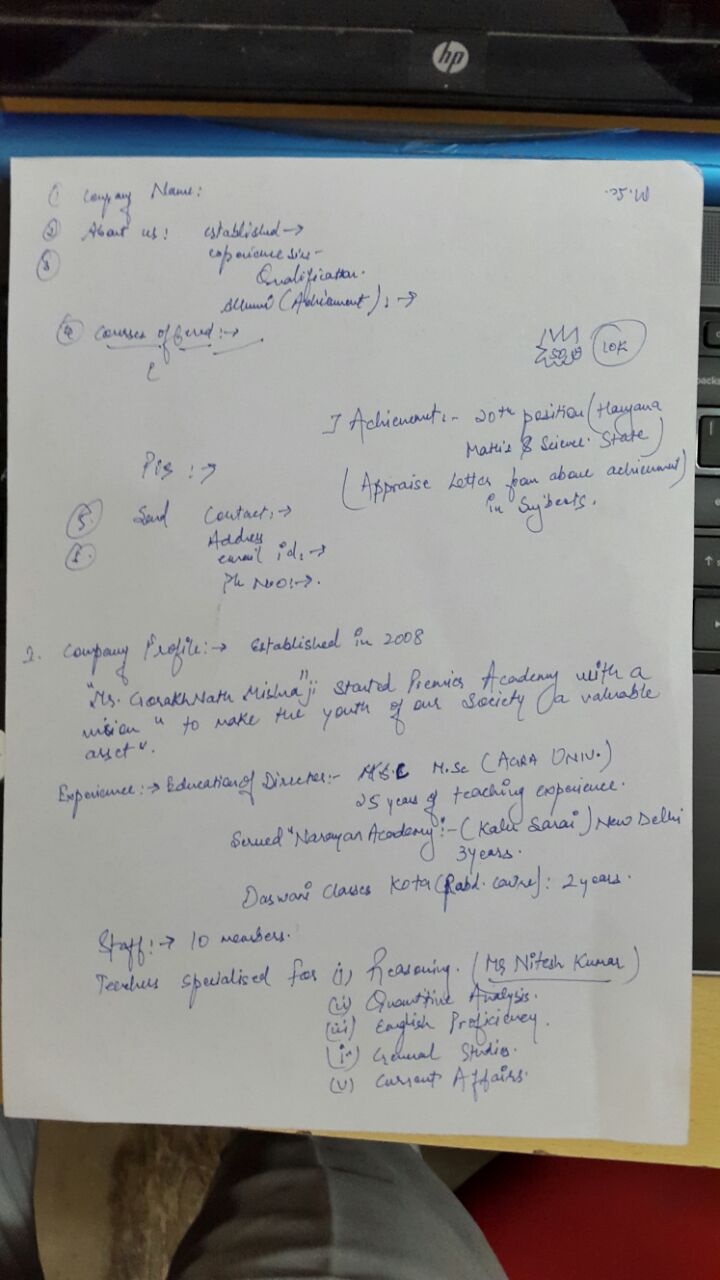 hp
① Company Name:
② About us: established →
③ experience since -
Qualification.
Alumni (Achivament): →
④ Courses offered: →
10K
I Achievement:- 20th position (Haryana
Maths & Science State)
(Appraise Letter from above achievement)
in Sujberts.
Pis : →
⑤. Send Contact: →
⑥. Address
email id: →
Ph No: →.
2. Company Profile: → Established in 2008
"Mr. Gorakh Nath Mishra" ji Started Premier Academy with a
vision " to make the youth of our Society a valuable
asset".
Experience: → Education of Director:- M.Sc (AGRA UNIV.)
25 years of teaching experience.
Served "Narayan Academy":- (Kalu Sarai) New Delhi
3 years.
Daswani Classes Kota : 2 years.
Staff: → 10 members.
Teachers specialised for (i) Reasoning. (Mr Nitesh Kumar)
(ii) Quantitive Analysis.
(iii) English Proficiency.
(iv) General Studies.
(v) Current Affairs.